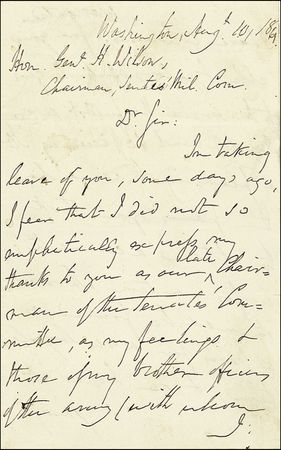 Washington, Aug.t 10, 186
Hon. Genl. H. Wilson,
Chairman, Senates' Mil. Com.
Dr. Sir:
In taking
leave of you, some days ago,
I fear that I did not so
emphatically express my
thanks to you as our, late Chair-
man of the Senates' Com-
mittee, as my feelings &
those of my brother officers
of the army (with whom
I.